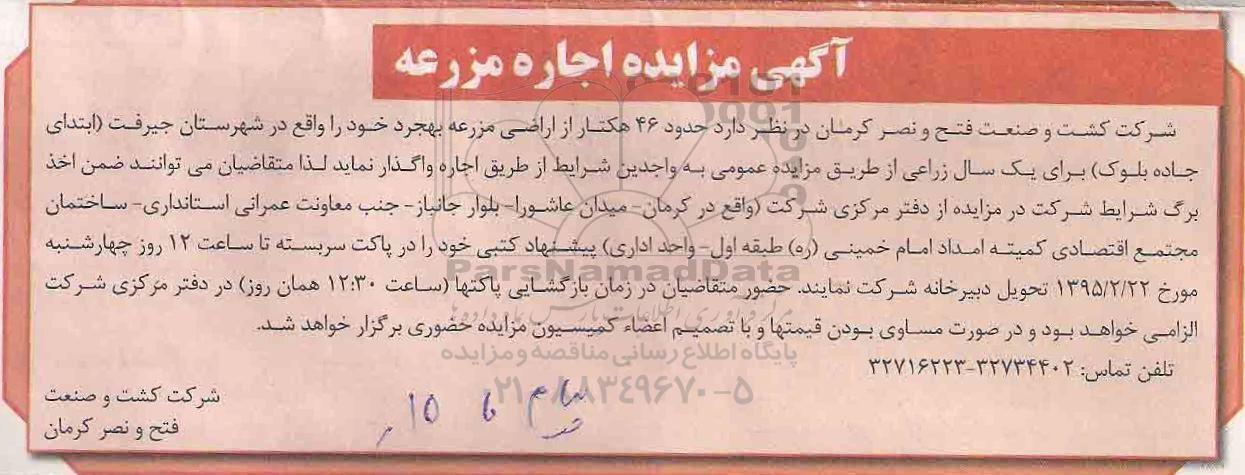 آگهی مزایده اجاره مزرعه
شرکت کشت و صنعت فتح و نصر کرمان در نظر دارد حدود ۴۶ هکتار از اراضی مزرعه بهجرد خود را واقع در شهرستان جیرفت (ابتدای
جاده بلوک) برای یک سال زراعی از طریق مزایده عمومی به واجدین شرایط از طریق اجاره واگذار نماید لذا متقاضیان می توانند ضمن اخذ
برگ شرایط شرکت در مزایده از دفتر مرکزی شرکت (واقع در کرمان- میدان عاشورا- بلوار جانباز- جنب معاونت عمرانی استانداری- ساختمان
مجتمع اقتصادی کمیته امداد امام خمینی (ره) طبقه اول- واحد اداری) پیشنهاد کتبی خود را در پاکت سربسته تا ساعت ۱۲ روز چهارشنبه
مورخ ۱۳۹۵/۲/۲۲ تحویل دبیرخانه شرکت نمایند. حضور متقاضیان در زمان بازگشایی پاکتها (ساعت ۱۲:۳۰ همان روز) در دفتر مرکزی شرکت
الزامی خواهد بود و در صورت مساوی بودن قیمتها و با تصمیم اعضاء کمیسیون مزایده حضوری برگزار خواهد شد.
تلفن تماس: ۳۲۷۳۴۴۰۲-۳۲۷۱۶۲۲۳
شرکت کشت و صنعت
فتح و نصر کرمان
ParsNamadData
پایگاه اطلاع رسانی مناقصه و مزایده
۰۲۱-۸۸۳۴۹۶۷۰-۵